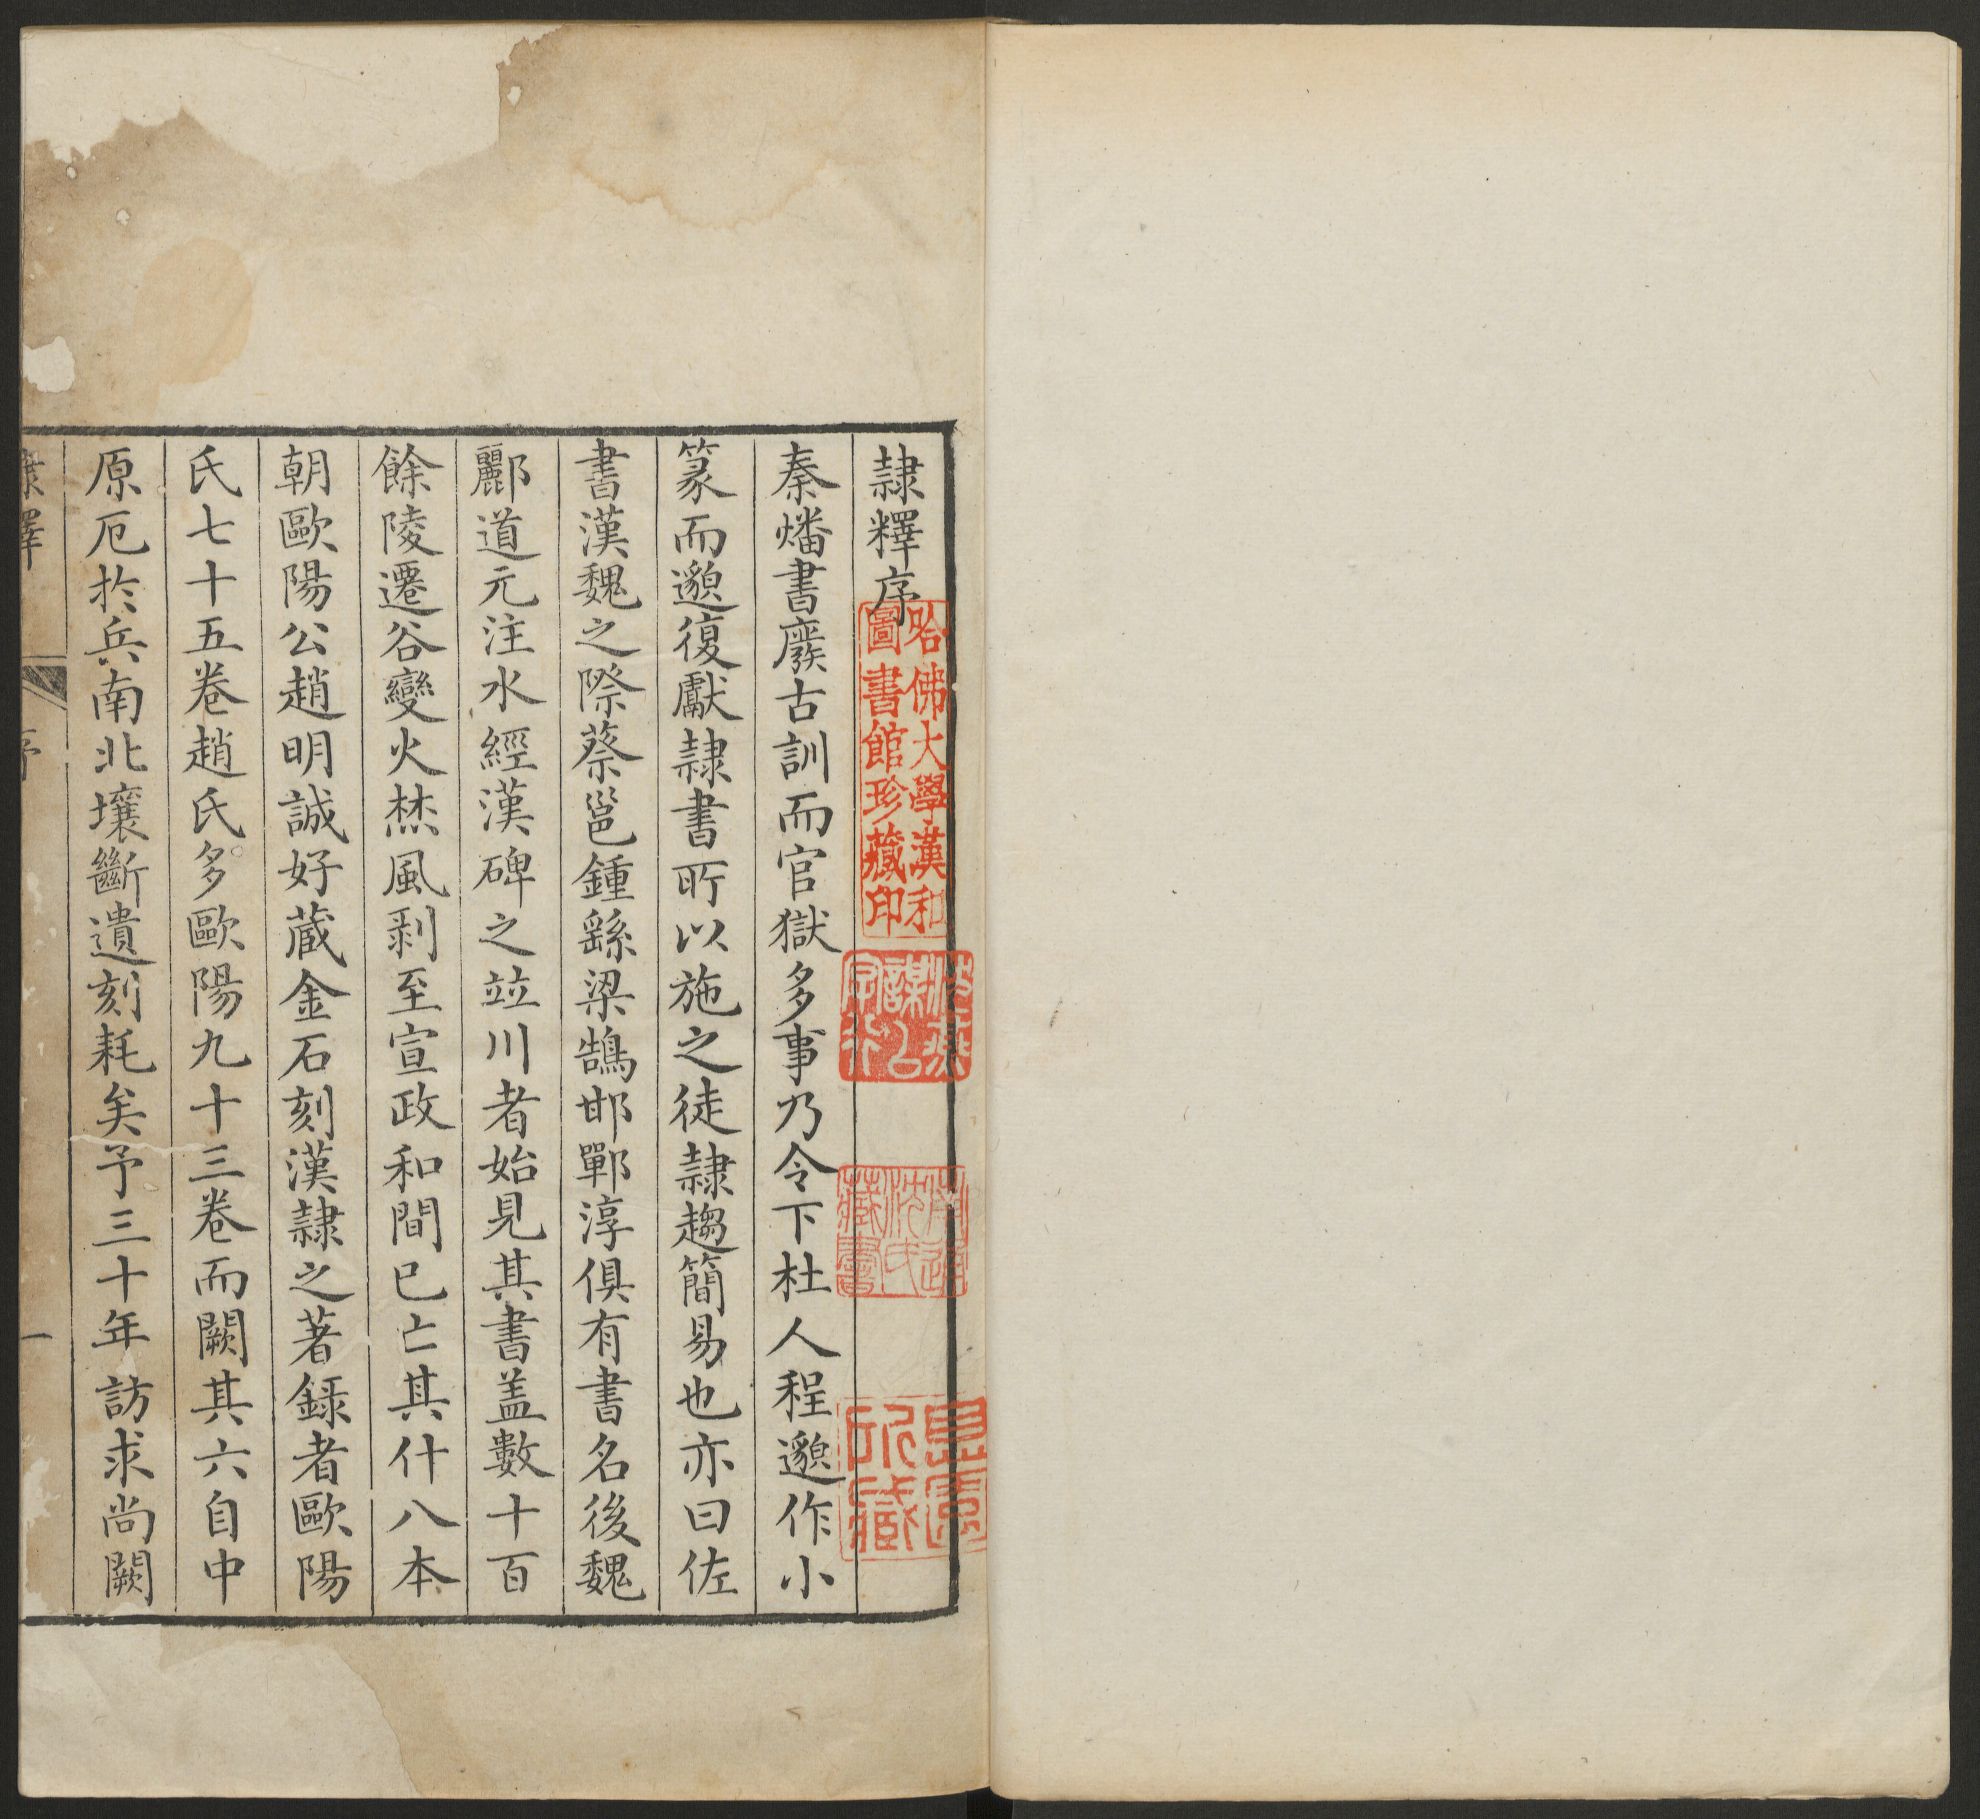 隷釋序
秦燔書廢古訓而官獄多事乃令下杜人程邈作小
篆而邈復獻隷書所以施之徒隷趨簡易也亦曰佐
書漢魏之際蔡邕鍾繇梁鵠邯鄲淳俱有書名後魏
酈道元注水經漢碑之竝川者始見其書盖數十百
餘陵遷谷變火焚風剥至宣政和間已亡其什八本
朝歐陽公趙明誠好蔵金石刻漢隷之著録者歐陽
氏七十五卷趙氏多歐陽九十三卷而闕其六自中
原厄扵兵南北壤斷遺刻耗矣予三十年訪求尚闕
隷釋
序
一
哈佛大學漢和
圖書館珍藏印
南通
沈氏
藏書
所藏